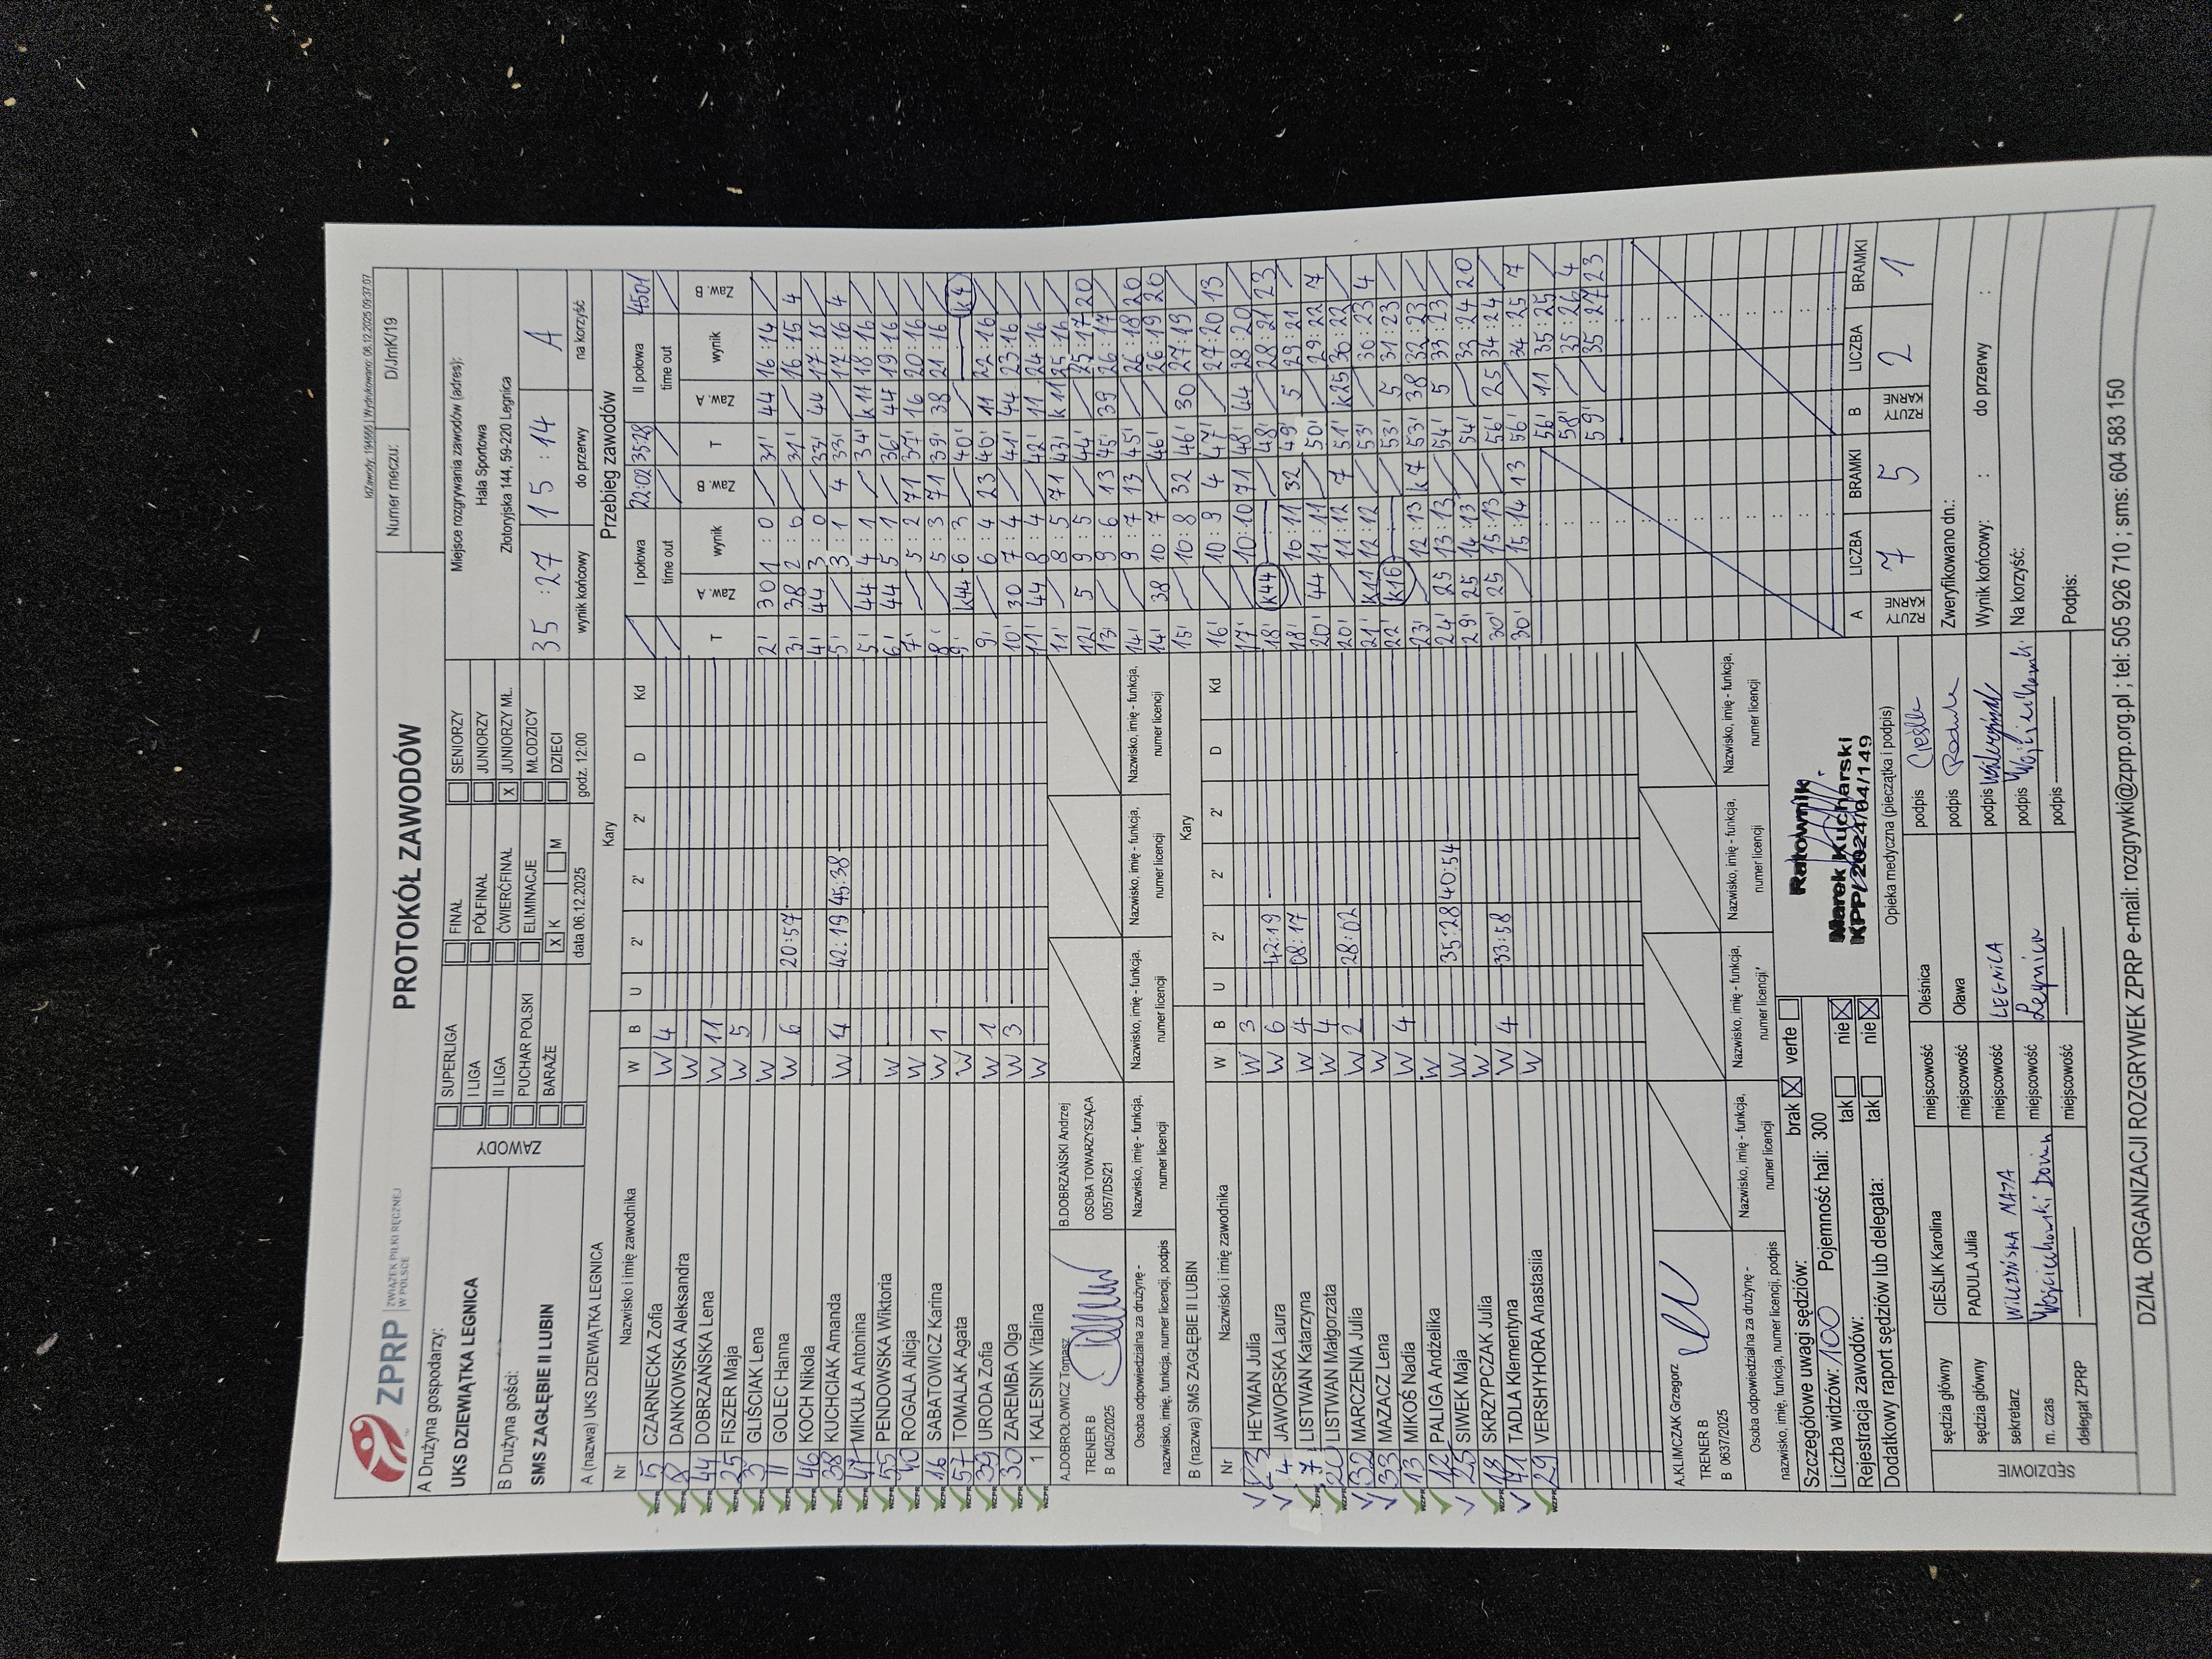 IdZawody: 194666 | Wydrukowano: 06.12.2025 09:37:07
ZPRP ZWIĄZEK PIŁKI RĘCZNEJ W POLSCE
PROTOKÓŁ ZAWODÓW
Numer meczu: D/JmK/19
A Drużyna gospodarzy:
UKS DZIEWIĄTKA LEGNICA
B Drużyna gości:
SMS ZAGŁĘBIE II LUBIN
ZAWODY
SUPERLIGA
I LIGA
II LIGA
PUCHAR POLSKI
BARAŻE
FINAŁ
PÓŁFINAŁ
ĆWIERĆFINAŁ
ELIMINACJE
X K M
SENIORZY
JUNIORZY
X JUNIORZY MŁ.
MŁODZICY
DZIECI
data 06.12.2025 godz. 12:00
Miejsce rozgrywania zawodów (adres):
Hala Sportowa
Złotoryjska 144, 59-220 Legnica
35 : 27 15 : 14 A
wynik końcowy do przerwy na korzyść
A (nazwa) UKS DZIEWIĄTKA LEGNICA Kary
Nr Nazwisko i imię zawodnika W B U 2' 2' 2' D Kd
5 CZARNECKA Zofia W 4
8 DANKOWSKA Aleksandra W
44 DOBRZAŃSKA Lena W 11
25 FISZER Maja W 5
3 GLIŚCIAK Lena W
11 GOLEC Hanna W 6 20:57
46 KOCH Nikola
38 KUCHCIAK Amanda W 4 42:19 45:38
47 MIKUŁA Antonina
55 PENDOWSKA Wiktoria W
10 ROGALA Alicja W
16 SABATOWICZ Karina W 1
57 TOMALAK Agata W
39 URODA Zofia W 1
30 ZAREMBA Olga W 3
1 KALESNIK Vitalina W
A.DOBROŁOWICZ Tomasz
TRENER B
B 0405/2025
B.DOBRZAŃSKI Andrzej
OSOBA TOWARZYSZĄCA
0057/DS/21
Osoba odpowiedzialna za drużynę - nazwisko, imię, funkcja, numer licencji, podpis
Nazwisko, imię - funkcja, numer licencji
Nazwisko, imię - funkcja, numer licencji
Nazwisko, imię - funkcja, numer licencji
Nazwisko, imię - funkcja, numer licencji
B (nazwa) SMS ZAGŁĘBIE II LUBIN Kary
Nr Nazwisko i imię zawodnika W B U 2' 2' 2' D Kd
23 HEYMAN Julia W 3
4 JAWORSKA Laura W 6 42:19
7 LISTWAN Katarzyna W 4 08:17
20 LISTWAN Małgorzata W 4
32 MARCZENIA Julia W 2 28:02
33 MAZACZ Lena W
13 MIKOŚ Nadia W 4
12 PALIGA Andżelika W
25 SIWEK Maja W 35:28 40:54
18 SKRZYPCZAK Julia W
71 TADLA Klementyna W 4 33:58
29 VERSHYHORA Anastasiia W
A.KLIMCZAK Grzegorz
TRENER B
B 0637/2025
Osoba odpowiedzialna za drużynę - nazwisko, imię, funkcja, numer licencji, podpis
Nazwisko, imię - funkcja, numer licencji
Nazwisko, imię - funkcja, numer licencji
Nazwisko, imię - funkcja, numer licencji
Nazwisko, imię - funkcja, numer licencji
Przebieg zawodów
I połowa 22:02 35:28 II połowa 4501
time out time out
T Zaw. A wynik Zaw. B T Zaw. A wynik Zaw. B
2' 30 1 : 0 31' 44 16 : 14
3' 38 2 : 0 31' 16 : 15 4
4' 44 3 : 0 33' 44 17 : 15
5' 3 : 1 4 33' 17 : 16 4
5' 44 4 : 1 34' k11 18 : 16
6' 44 5 : 1 36' 44 19 : 16
7' 5 : 2 71 37' 16 20 : 16
8' 5 : 3 71 39' 38 21 : 16
9' k44 6 : 3 40' : k4
9' 6 : 4 23 40' 11 22 : 16
10' 30 7 : 4 41' 44 23 : 16
11' 44 8 : 4 42' 11 24 : 16
11' 8 : 5 71 43' k11 25 : 16
12' 5 9 : 5 44' 25 : 17 20
13' 9 : 6 13 45' 39 26 : 17
14' 9 : 7 13 45' 26 : 18 20
14' 38 10 : 7 46' 26 : 19 20
15' 10 : 8 32 46' 30 27 : 19
16' 10 : 9 4 47' 27 : 20 13
17' 10 : 10 71 48' 44 28 : 20
18' k44 : 48' 28 : 21 23
18' 10 : 11 32 49' 5 29 : 21
20' 44 11 : 11 50' 29 : 22 7
20' 11 : 12 7 51' k25 30 : 22
21' k11 12 : 12 53' 30 : 23 4
22' k16 : 53' 5 31 : 23
23' 12 : 13 k7 53' 38 32 : 23
24' 25 13 : 13 54' 5 33 : 23
29' 25 14 : 13 54' 33 : 24 20
30' 25 15 : 13 56' 25 34 : 24
30' 15 : 14 13 56' 34 : 25 7
56' 11 35 : 25
58' 35 : 26 4
59' 35 : 27 23
A RZUTY KARNE LICZBA 7 BRAMKI 5 B RZUTY KARNE LICZBA 2 BRAMKI 1
Szczegółowe uwagi sędziów: brak X verte
Liczba widzów: 100 Pojemność hali: 300
Rejestracja zawodów: tak nie X
Dodatkowy raport sędziów lub delegata: tak nie X
Ratownik
Marek Kucharski
KPP/2024/04/149
Opieka medyczna (pieczątka i podpis)
Zweryfikowano dn.:
Wynik końcowy: : do przerwy :
Na korzyść:
Podpis:
SĘDZIOWIE
sędzia główny CIEŚLIK Karolina miejscowość Oleśnica podpis Cieślik
sędzia główny PADULA Julia miejscowość Oława podpis Padula
sekretarz WILCZYŃSKA MAJA miejscowość LEGNICA podpis
m. czas Wojciechowski miejscowość Legnica podpis Wojciechowski
delegat ZPRP miejscowość podpis
DZIAŁ ORGANIZACJI ROZGRYWEK ZPRP e-mail: rozgrywki@zprp.org.pl ; tel: 505 926 710 ; sms: 604 583 150